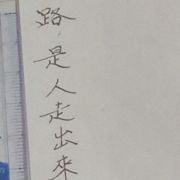 路是人走出來